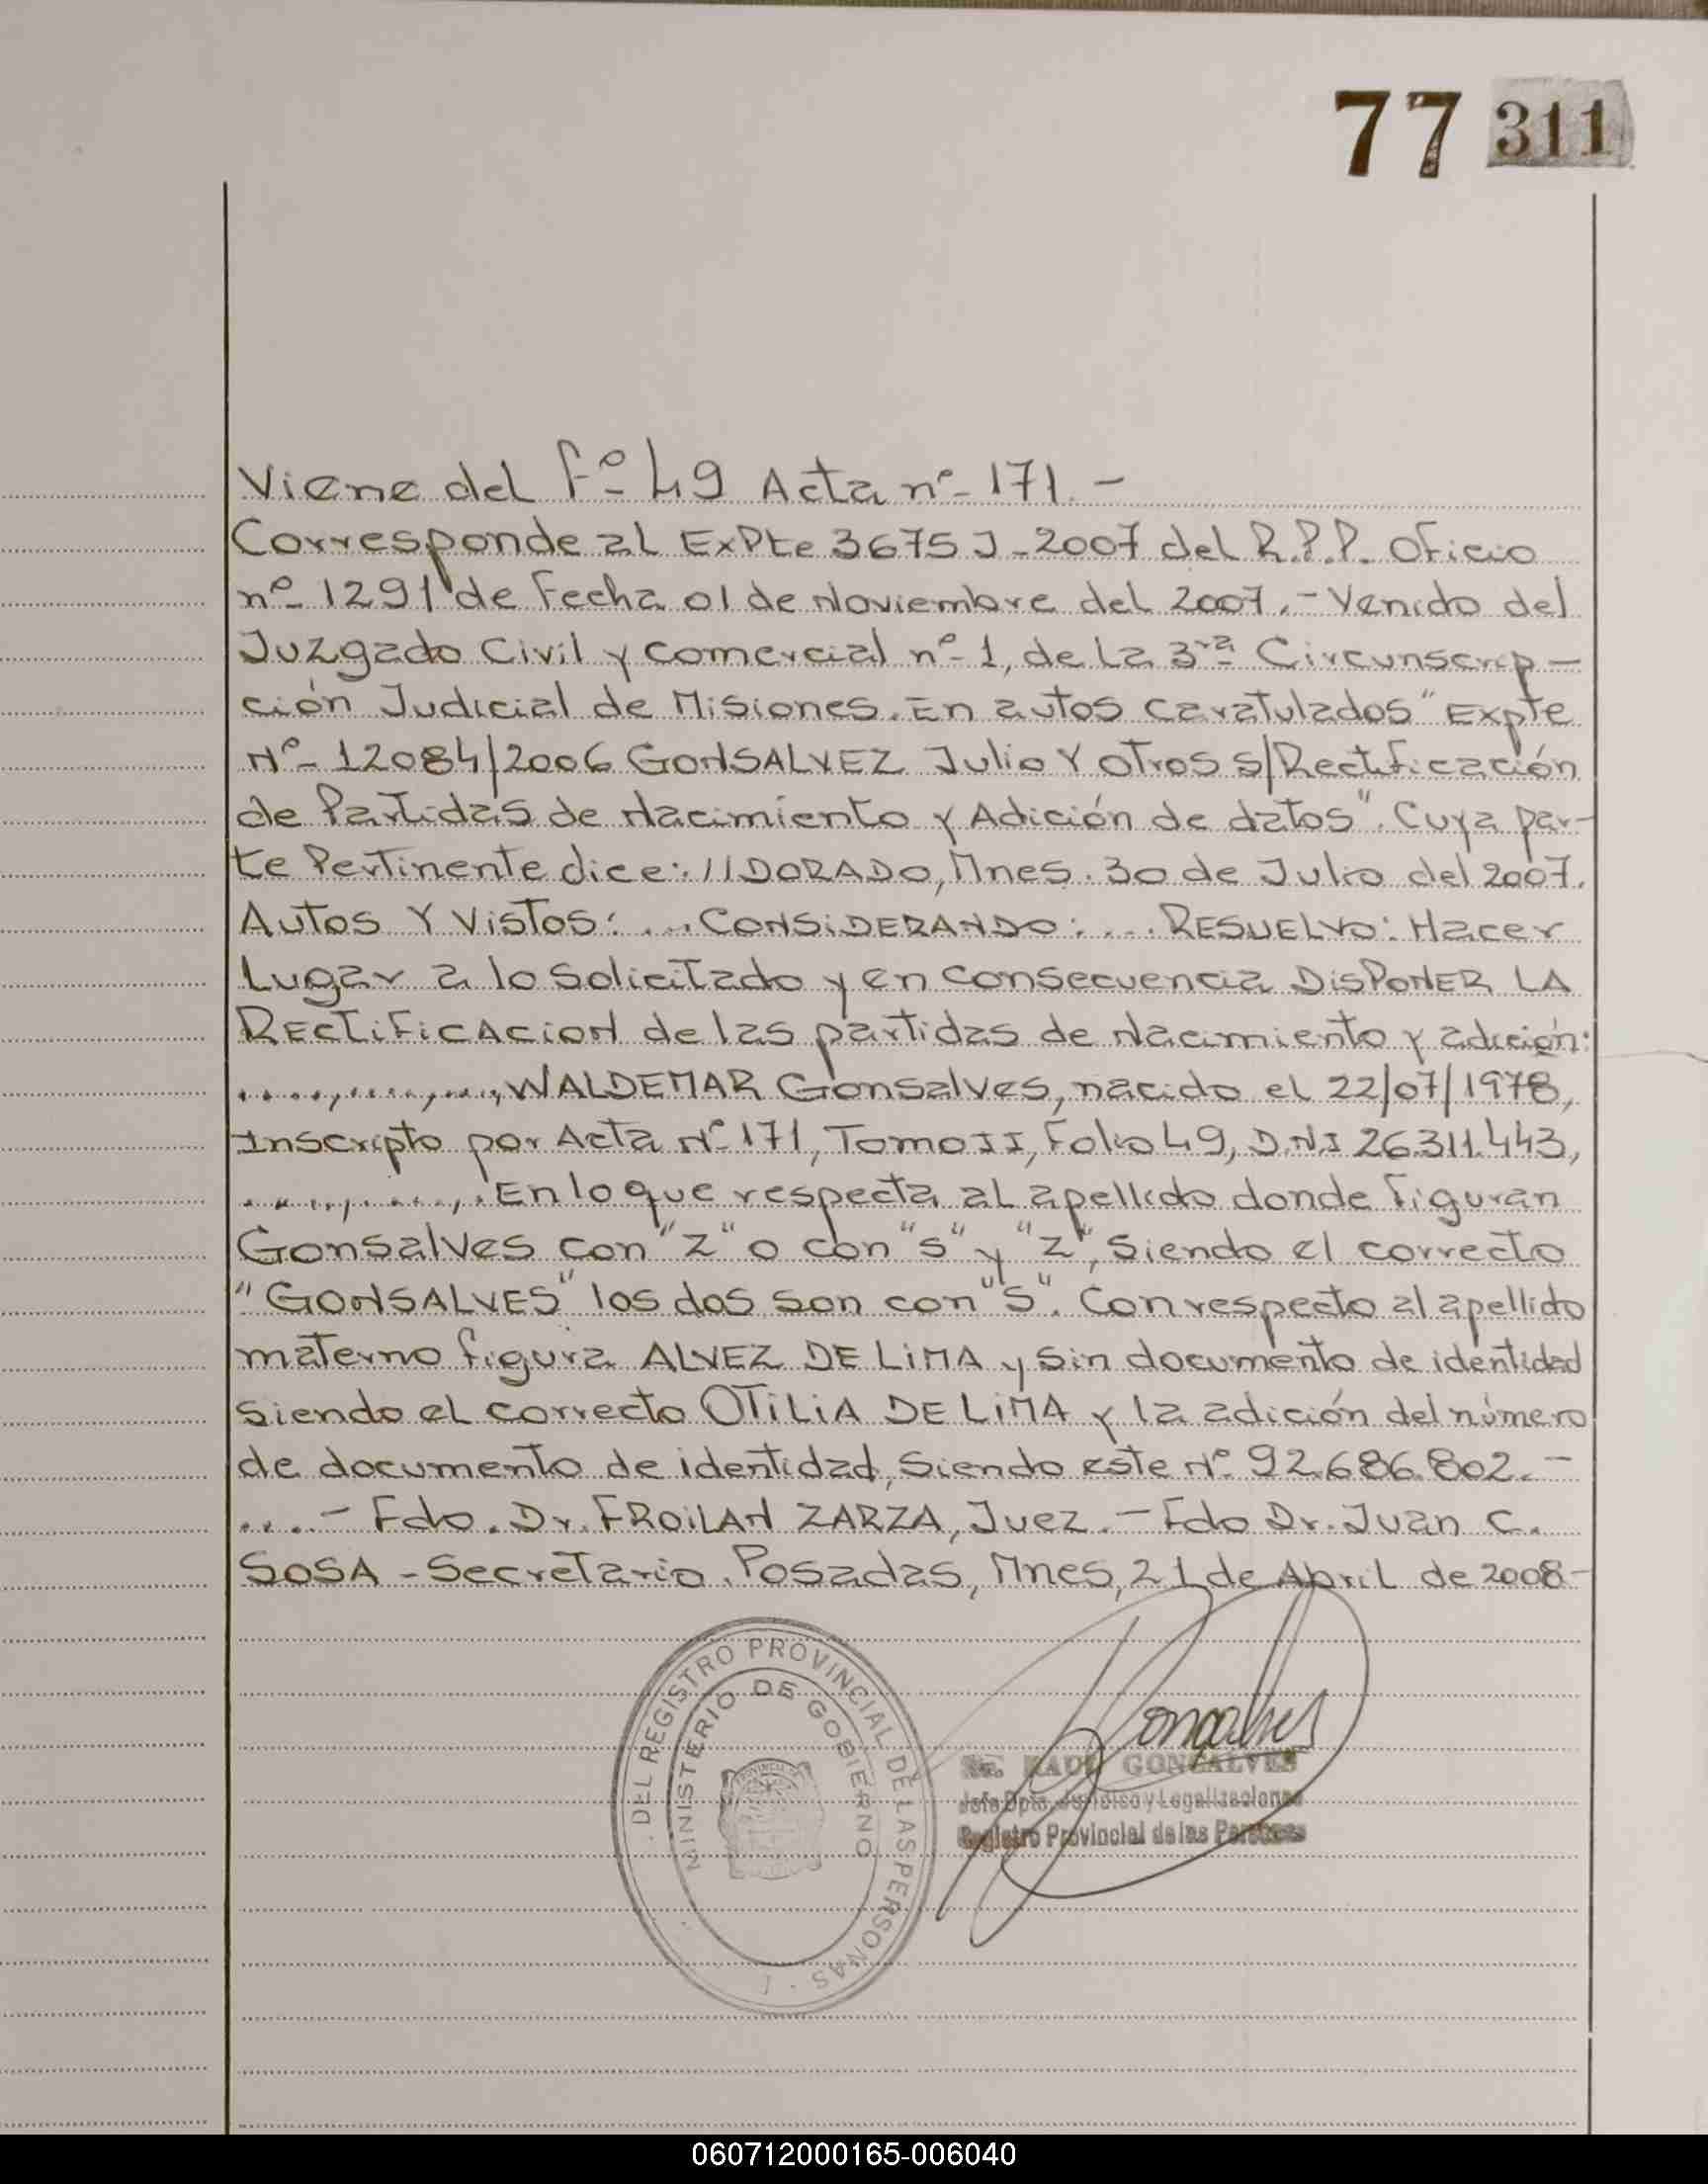 77 311
Viene del Fº 49 Acta nº 171.-
Corresponde al ExPte 3675 J-2007 del R.P.P. Oficio
nº 1291 de Fecha 01 de Noviembre del 2007.- Venido del
Juzgado Civil y Comercial nº 1, de La 3ra Circunscrip-
ción Judicial de Misiones. En autos caratulados "Expte
Nº 12084/2006 GONSALVEZ Julio Y otros s/Rectificación
de Partidas de Nacimiento y Adición de datos". Cuya par-
te Pertinente dice: //DORADO, Mnes. 30 de Julio del 2007.
Autos Y Vistos: ... CONSIDERANDO: ... RESUELVO: Hacer
Lugar a lo solicitado y en consecuencia DISPONER LA
RECTIFICACION de las partidas de Nacimiento y adición:
..............., WALDEMAR Gonsalves, nacido el 22/07/1978,
Inscripto por Acta Nº 171, Tomo II, Folio 49, D.N.I 26.311.443,
............. En lo que respecta al apellido donde figuran
Gonsalves con "z" o con "s" y "z", siendo el correcto
"GONSALVES" los dos son con "S". Con respecto al apellido
materno figura ALVEZ DE LIMA y sin documento de identidad
siendo el correcto OTILIA DE LIMA y la adición del número
de documento de identidad, siendo este Nº 92.686.802.-
....- Fdo. Dr. FROILAN ZARZA, Juez.- Fdo Dr. Juan C.
SOSA - Secretario. Posadas, Mnes, 21 de Abril de 2008-
DEL REGISTRO PROVINCIAL DE LAS PERSONAS
MINISTERIO DE GOBIERNO
PROVINCIA DE
Gonçalves
RAUL GONÇALVES
Jefe Dpto. Jurídico y Legalizaciones
Registro Provincial de las Personas
060712000165-006040